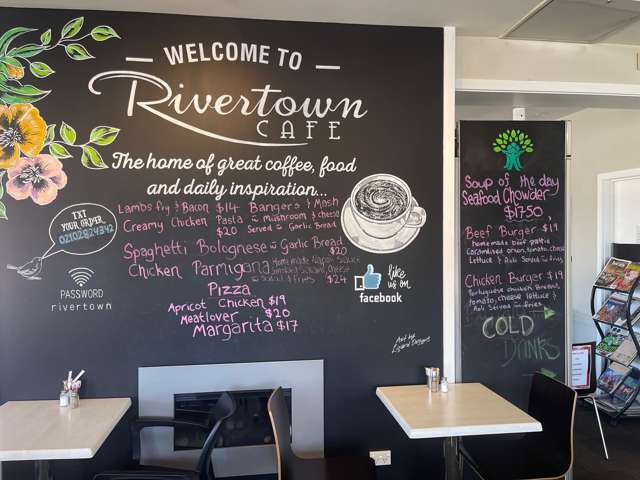 WELCOME TO
Rivertown
CAFE
The home of great coffee, food
and daily inspiration...
TXT
YOUR ORDER
02102824342
PASSWORD
rivertown
Lambs fry & Bacon $14 Bangers & Mash
Creamy Chicken Pasta w mushroom & cheese
$20 Served w Garlic Bread
Spaghetti Bolognese w Garlic Bread
$20
Chicken Parmigana Homemade Napoli Sauce
Smoked Salami, Cheese
w Salad & fries $24
Pizza
Apricot Chicken $19
Meatlover $20
Margarita $17
like
us on
facebook
Art by
Soup of the day
Seafood Chowder
$17.50
Beef Burger $19
homemade beef pattie
Caramelised onion, tomato, cheese
Lettuce & Aioli Served w fries
Chicken Burger $19
Portuguese chicken Breast,
tomato, cheese lettuce &
Aoli Served w fries
COLD
DRINKS